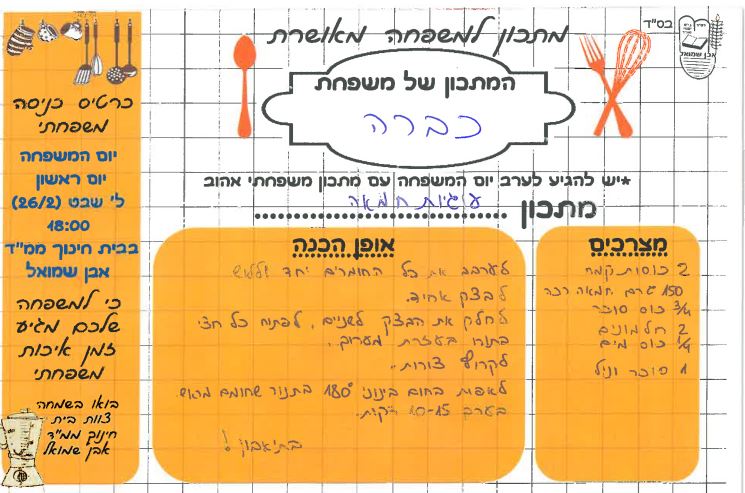 בס"ד
אבן שמואל
מתכון למשפחה מאושרת
המתכון של משפחת
כברה
*יש להגיע לערב יום המשפחה עם מתכון משפחתי אהוב
מתכון עוגיות חמאה
מצרכים
2 כוסות קמח
150 גרם חמאה רכה
3/4 כוס סוכר
2 חלמונים
1/4 כוס מים
1 סוכר וניל
אופן הכנה
לערבב את כל החומרים יחד וללוש
לבצק אחיד.
לחלק את הבצק לשניים, לפתוח כל חצי
בתורו בעזרת מערוך.
לקרוץ צורות.
לאפות בחום בינוני 180° בתנור שחומם מראש
בערך 10-15 דקות.
בתיאבון!
כרטיס כניסה
משפחתי
יום המשפחה
יום ראשון
ל' שבט (26/2)
18:00
בבית חינוך ממ"ד
אבן שמואל
כי למשפחה
שלכם מגיע
זמן איכות
משפחתי
בואו בשמחה
צוות בית
חינוך ממ"ד
אבן שמואל